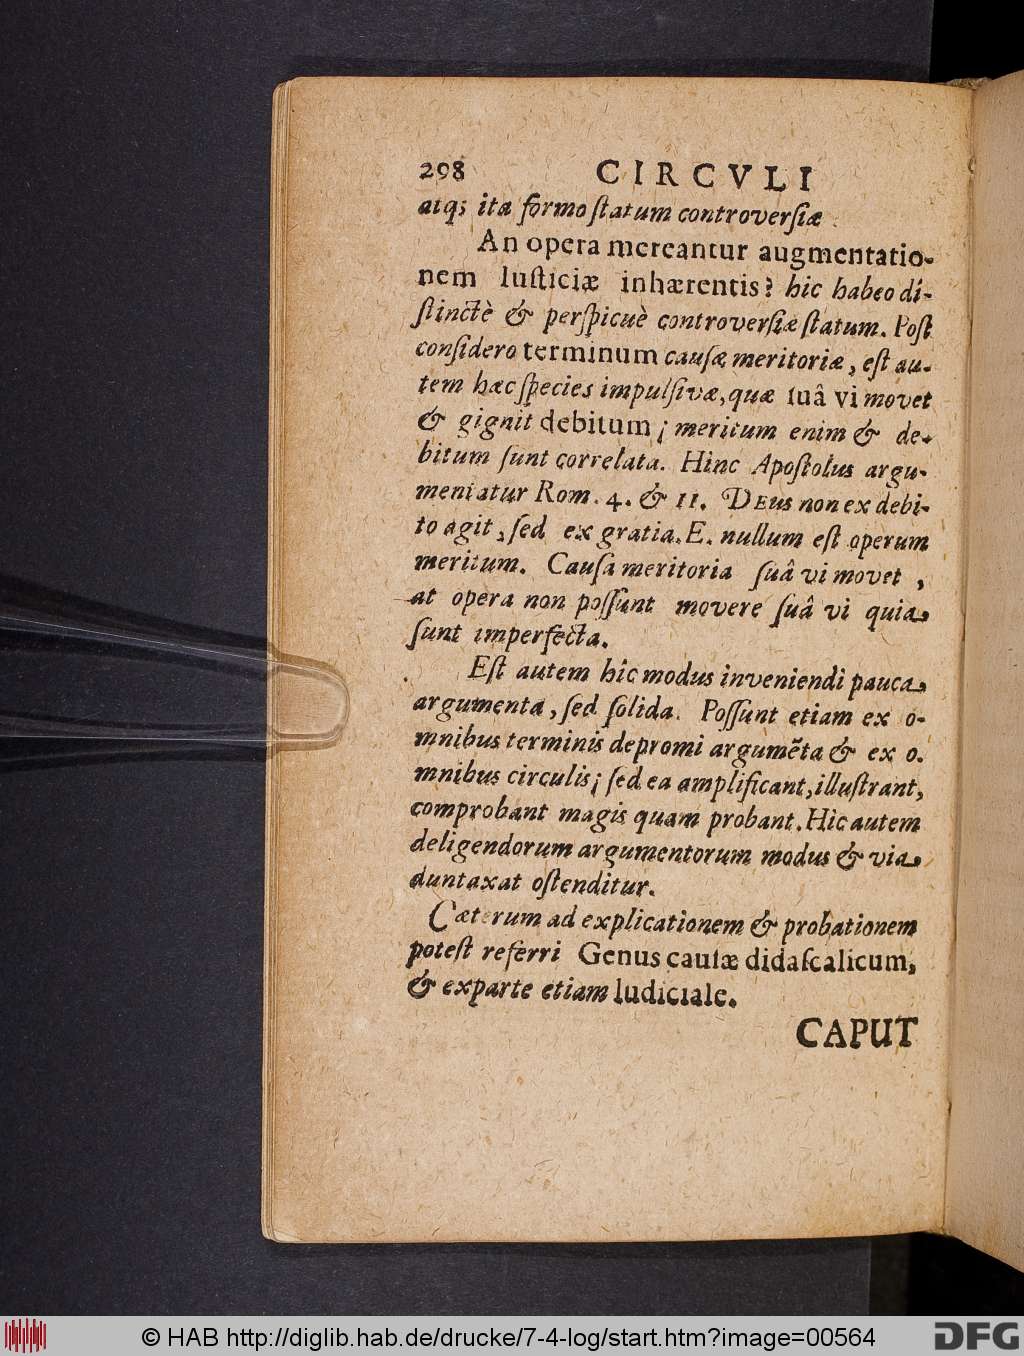 298 CIRCVLI
atq; ita formo ſtatum controverſiæ.
An opera mereantur augmentatio-
nem Iuſticiæ inhærentis? hic habeo di-
ſtinctè & perſpicuè controverſiæ ſtatum. Poſt
conſidero terminum cauſæ meritoriæ, eſt au-
tem hæc ſpecies impulſivæ, quæ ſuâ vi movet
& gignit debitum; meritum enim & de-
bitum ſunt correlata. Hinc Apoſtolus argu-
mentatur Rom. 4. & 11. DEus non ex debi-
to agit, ſed ex gratia. E. nullum eſt operum
meritum. Cauſa meritoria ſuâ vi movet,
at opera non poſſunt movere ſuâ vi quia
ſunt imperfecta.
Eſt autem hic modus inveniendi pauca
argumenta, ſed ſolida. Poſſunt etiam ex o-
mnibus terminis depromi argumẽta & ex o-
mnibus circulis; ſed ea amplificant, illuſtrant,
comprobant magis quam probant. Hic autem
deligendorum argumentorum modus & via
duntaxat oſtenditur.
Cæterum ad explicationem & probationem
poteſt referri Genus cauſæ didaſcalicum,
& exparte etiam Iudiciale.
CAPUT
© HAB http://diglib.hab.de/drucke/7-4-log/start.htm?image=00564 DFG